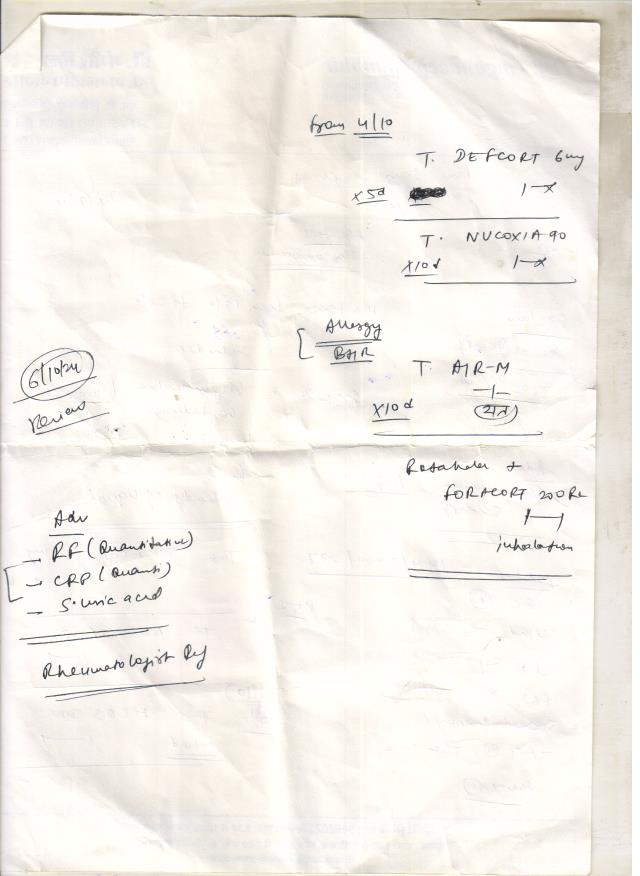 from 4/10
T. DEFCORT 6mg
x5d 1-x
T. NUCOXIA 90
x10d 1-x
Allergy
T. AIR-M
x10d
6/10/24
Review
Rotahaler +
FORACORT 200 Rc
inhalation
Adv
- RF (Quantitative)
- CRP (Quanti)
- S. uric acid
Rheumatologist Ref